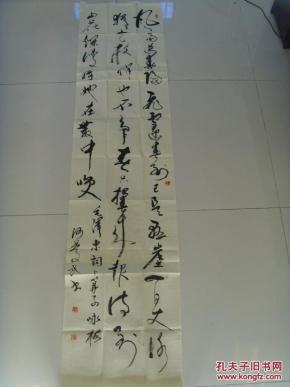 风雨送春归飞雪迎春到已是悬崖百丈冰
犹有花枝俏俏也不争春只把春来报待到
山花烂漫时她在丛中笑
毛泽东词卜算子咏梅
孔夫子旧书网